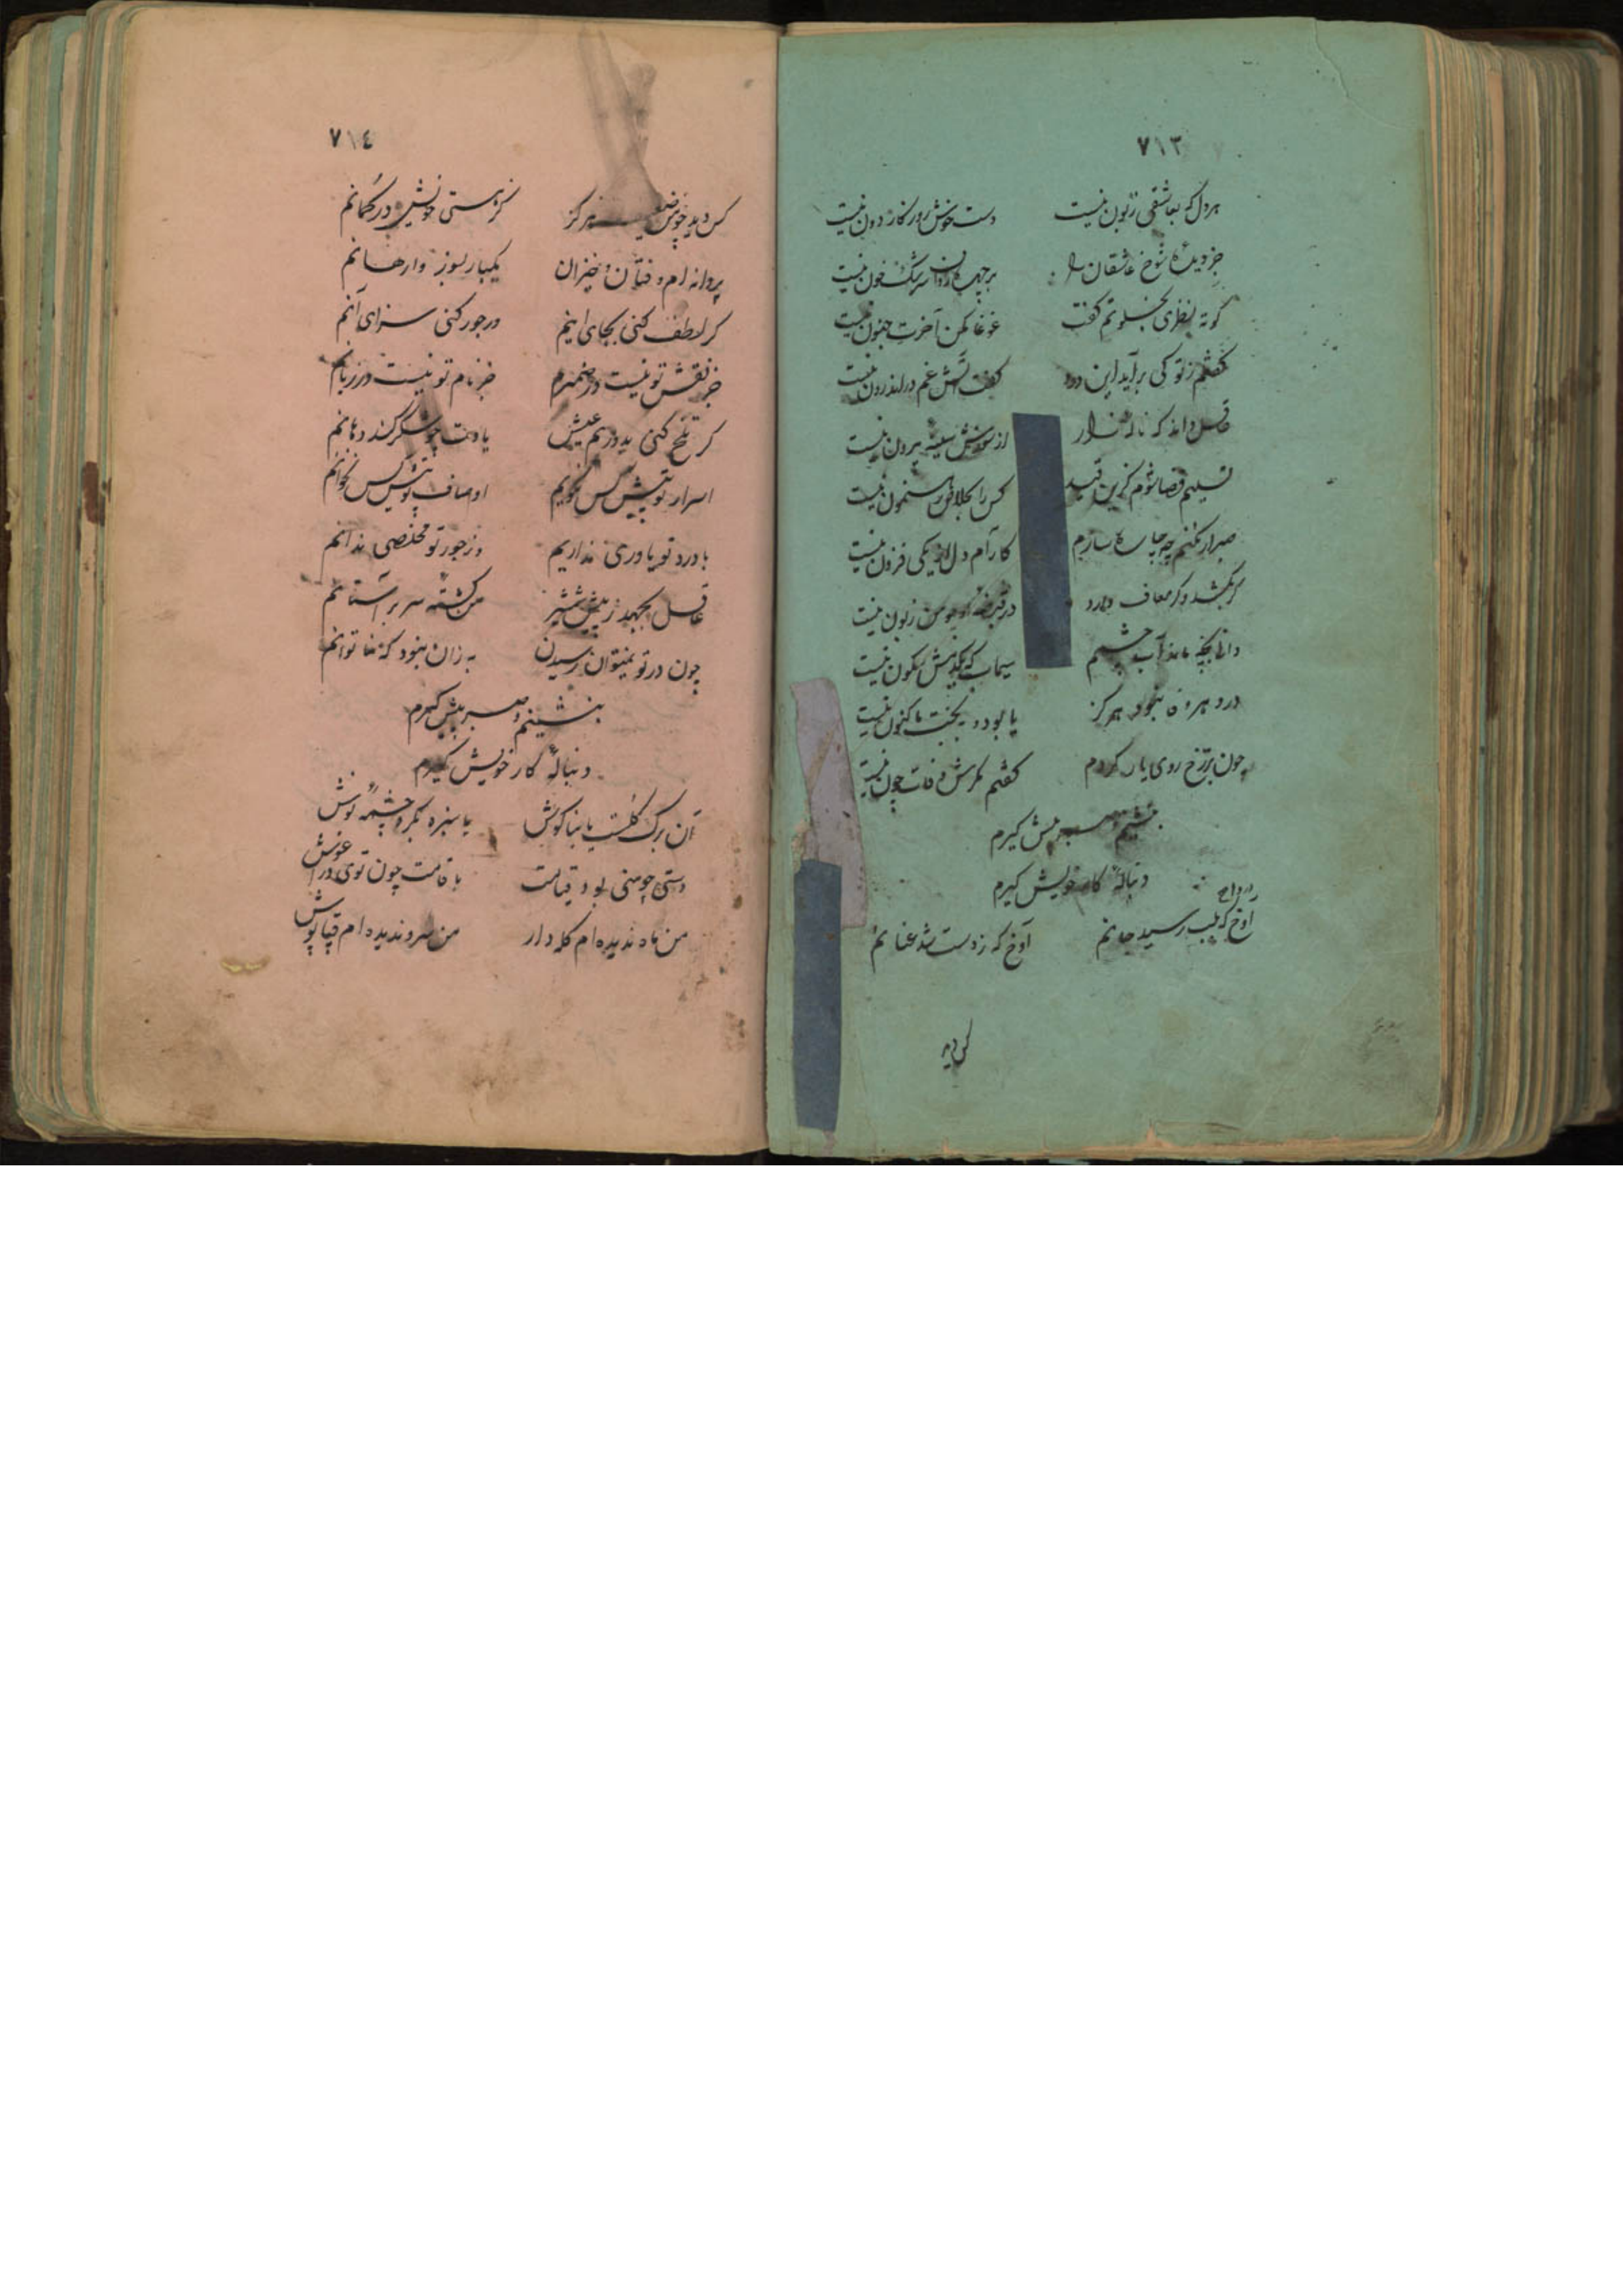 ٧١٣
هر دل که بعاشقی زبون نیست دست خوش روزکار دون نیست
جز دیدهٔ شوخ عاشقان را بر چهره روان سرشک خون نیست
کوته نظری بخلوتم کفت غوغا مکن آخرت جنون نیست
کفتم ز تو کی برآید این دود کفت آتش غم در اندرون نیست
غافل داند که نالهٔ زار از سوزش سینه بیرون نیست
تسلیم قضا شوم کزین قید کس را بخلاص رهنمون نیست
صبر ار نکنم چه چاره سازم کارام دل از یکی فزون نیست
کر بکشد و کر معاف دارد در قبضهٔ او چو من زبون نیست
دانی بچه ماند آب چشمم سیماب که یکدمش سکون نیست
در دهر وفا نبود هرکز یا بود و ببخت ما کنون نیست
چون برّخ روی یار کردم کفتم مکرش وفا چون نیست
بنشینم و صبر پیش کیرم
دنبالهٔ کار خویش کیرم
آوخ که بلب رسید جانم آوخ که ز دست شد عنانم
کس دید
٧١٤
کس دید چو من ضعیف هرکز کز هستی خویش در کمانم
پروانه ام و فتان و خیزان یکبار بسوز و وارهانم
کر لطف کنی بجای اینم ور جور کنی سزای آنم
جز نقش تو نیست در ضمیرم جز نام تو نیست در زبانم
کر تلخ کنی بدوریم عیش یادت چو شکر کند دهانم
اسرار تو پیش کس نکویم اوصاف تو پیش کس نخوانم
با درد تو یاوری نداریم وز جور تو مخلصی ندانم
عاقل بجهد ز پیش شمشیر من کشته سر بر آستانم
چون در تو نمیتوان رسیدن به زان نبود که تا توانم
بنشینم و صبر پیش کیرم
دنبالهٔ کار خویش کیرم
آن برک کلست یا بناکوش یا سبزه بکرد چشمهٔ نوش
دستی چو منی بود قیامت با قامت چون توی در آغوش
من ماه ندیده ام کله دار من سرو ندیده ام قبا پوش